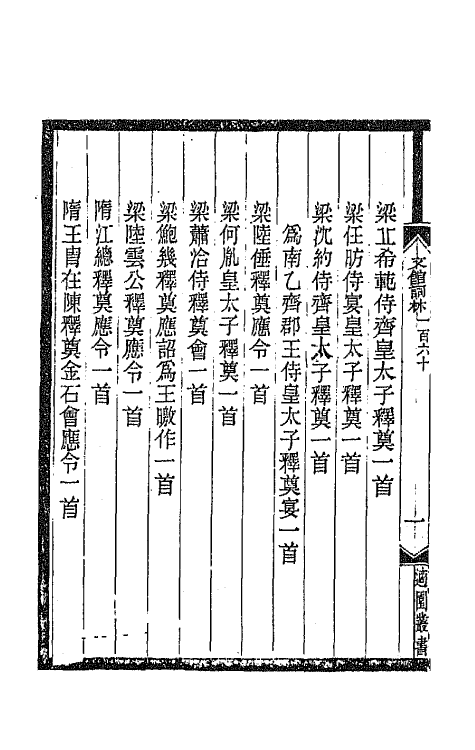 文館詞林一百六十
一
適園叢書
梁丘希範侍齊皇太子釋奠一首
梁任昉侍宴皇太子釋奠一首
梁沈約侍齊皇太子釋奠一首
爲南乙齊郡王侍皇太子釋奠宴一首
梁陸倕釋奠應令一首
梁何胤皇太子釋奠一首
梁蕭洽侍釋奠會一首
梁鮑幾釋奠應詔爲王暾作一首
梁陸雲公釋奠應令一首
隋江總釋奠應令一首
隋王胄在陳釋奠金石會應令一首